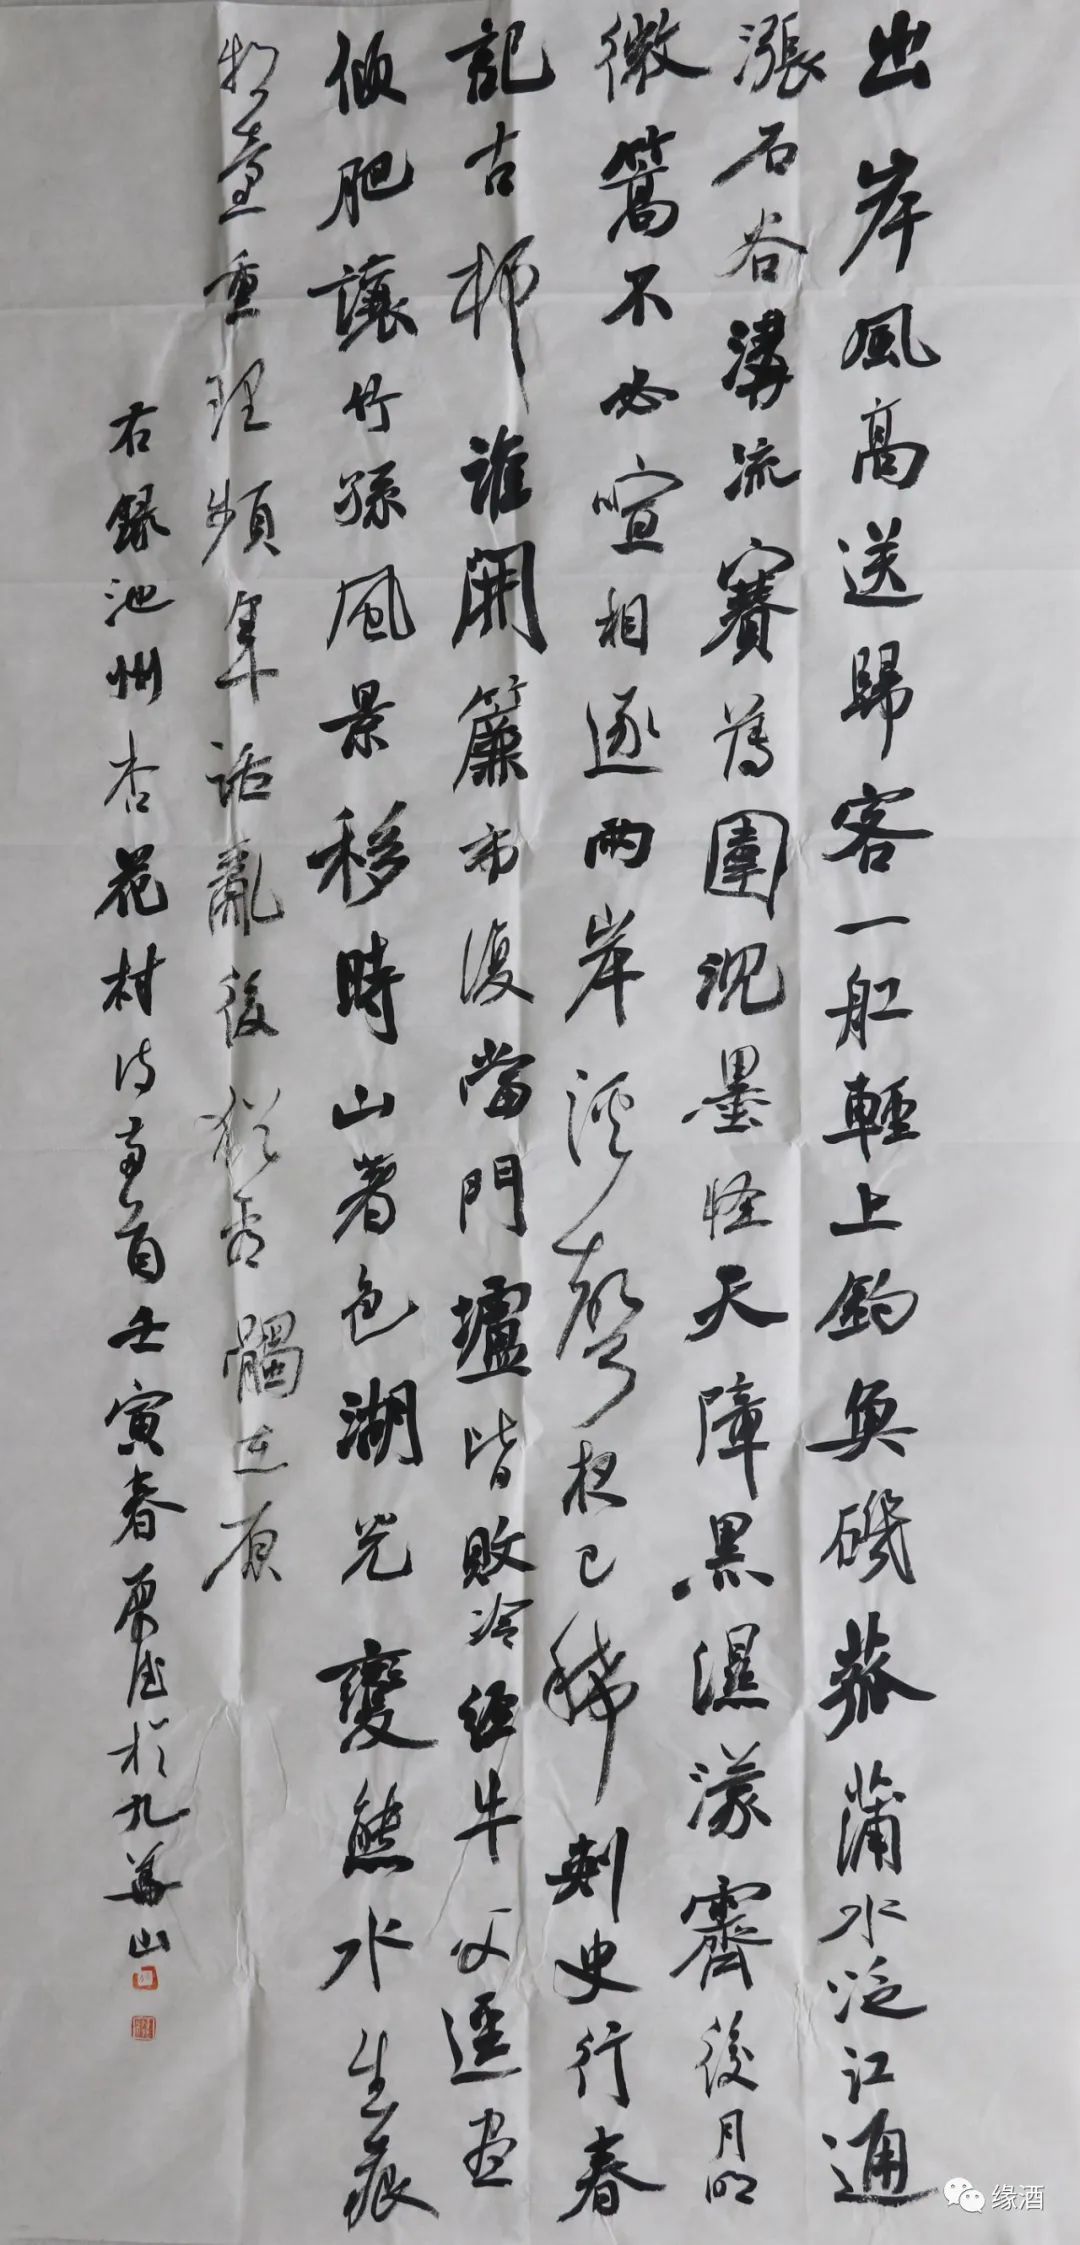 出岸風高送歸客一舡輕上釣魚磯菰蒲水泛江通
漲石谷溝流賽舊圍況墨怪天障黑濕濛霽後月明
微篙不必喧相逐兩岸溪聲根已稀刺史行春
記古柳誰開簾市復當門壚皆敗冷經牛父逕畫
傾肥讓竹孫風景移時山著色湖光變態水生痕
重理頻年話亂後猶看髑逐原
右錄池州杏花村詩二首壬寅春原虎於九華山
缘酒